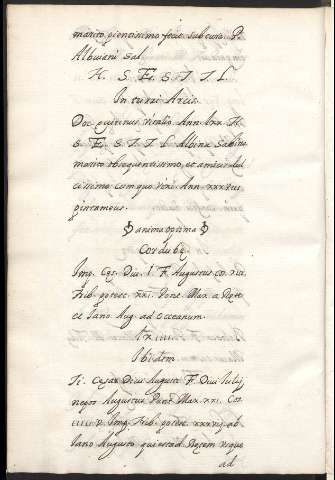 marito pientissimo fecit sub cura P.
Albuiani Sal
H. S. E. S. T. T. L.
In turri Arcis
Doc quirinus vitalio. Ann. LXX H.
S. E. S. T. T. L Albina Sabina
marito obsequentissimo, et amico dul
cissimo cum quo vixi Ann. XXXV
animo optimo
Cordubę
Imp. Cęs. Diu. F. Augustus co.
Trib. potest. XXI. Pont. Max. a Bęte
et Iano Aug. ad Oceanum
Ibidem
Ti. Cęsar Diui Augusti F. Diui Iulij
nepos Augustus Pont. Max. XXI. Cos
V. Imp. Trib. potest. XXXVII ab
Iano Augusto qui est ad Bętem usque
ad